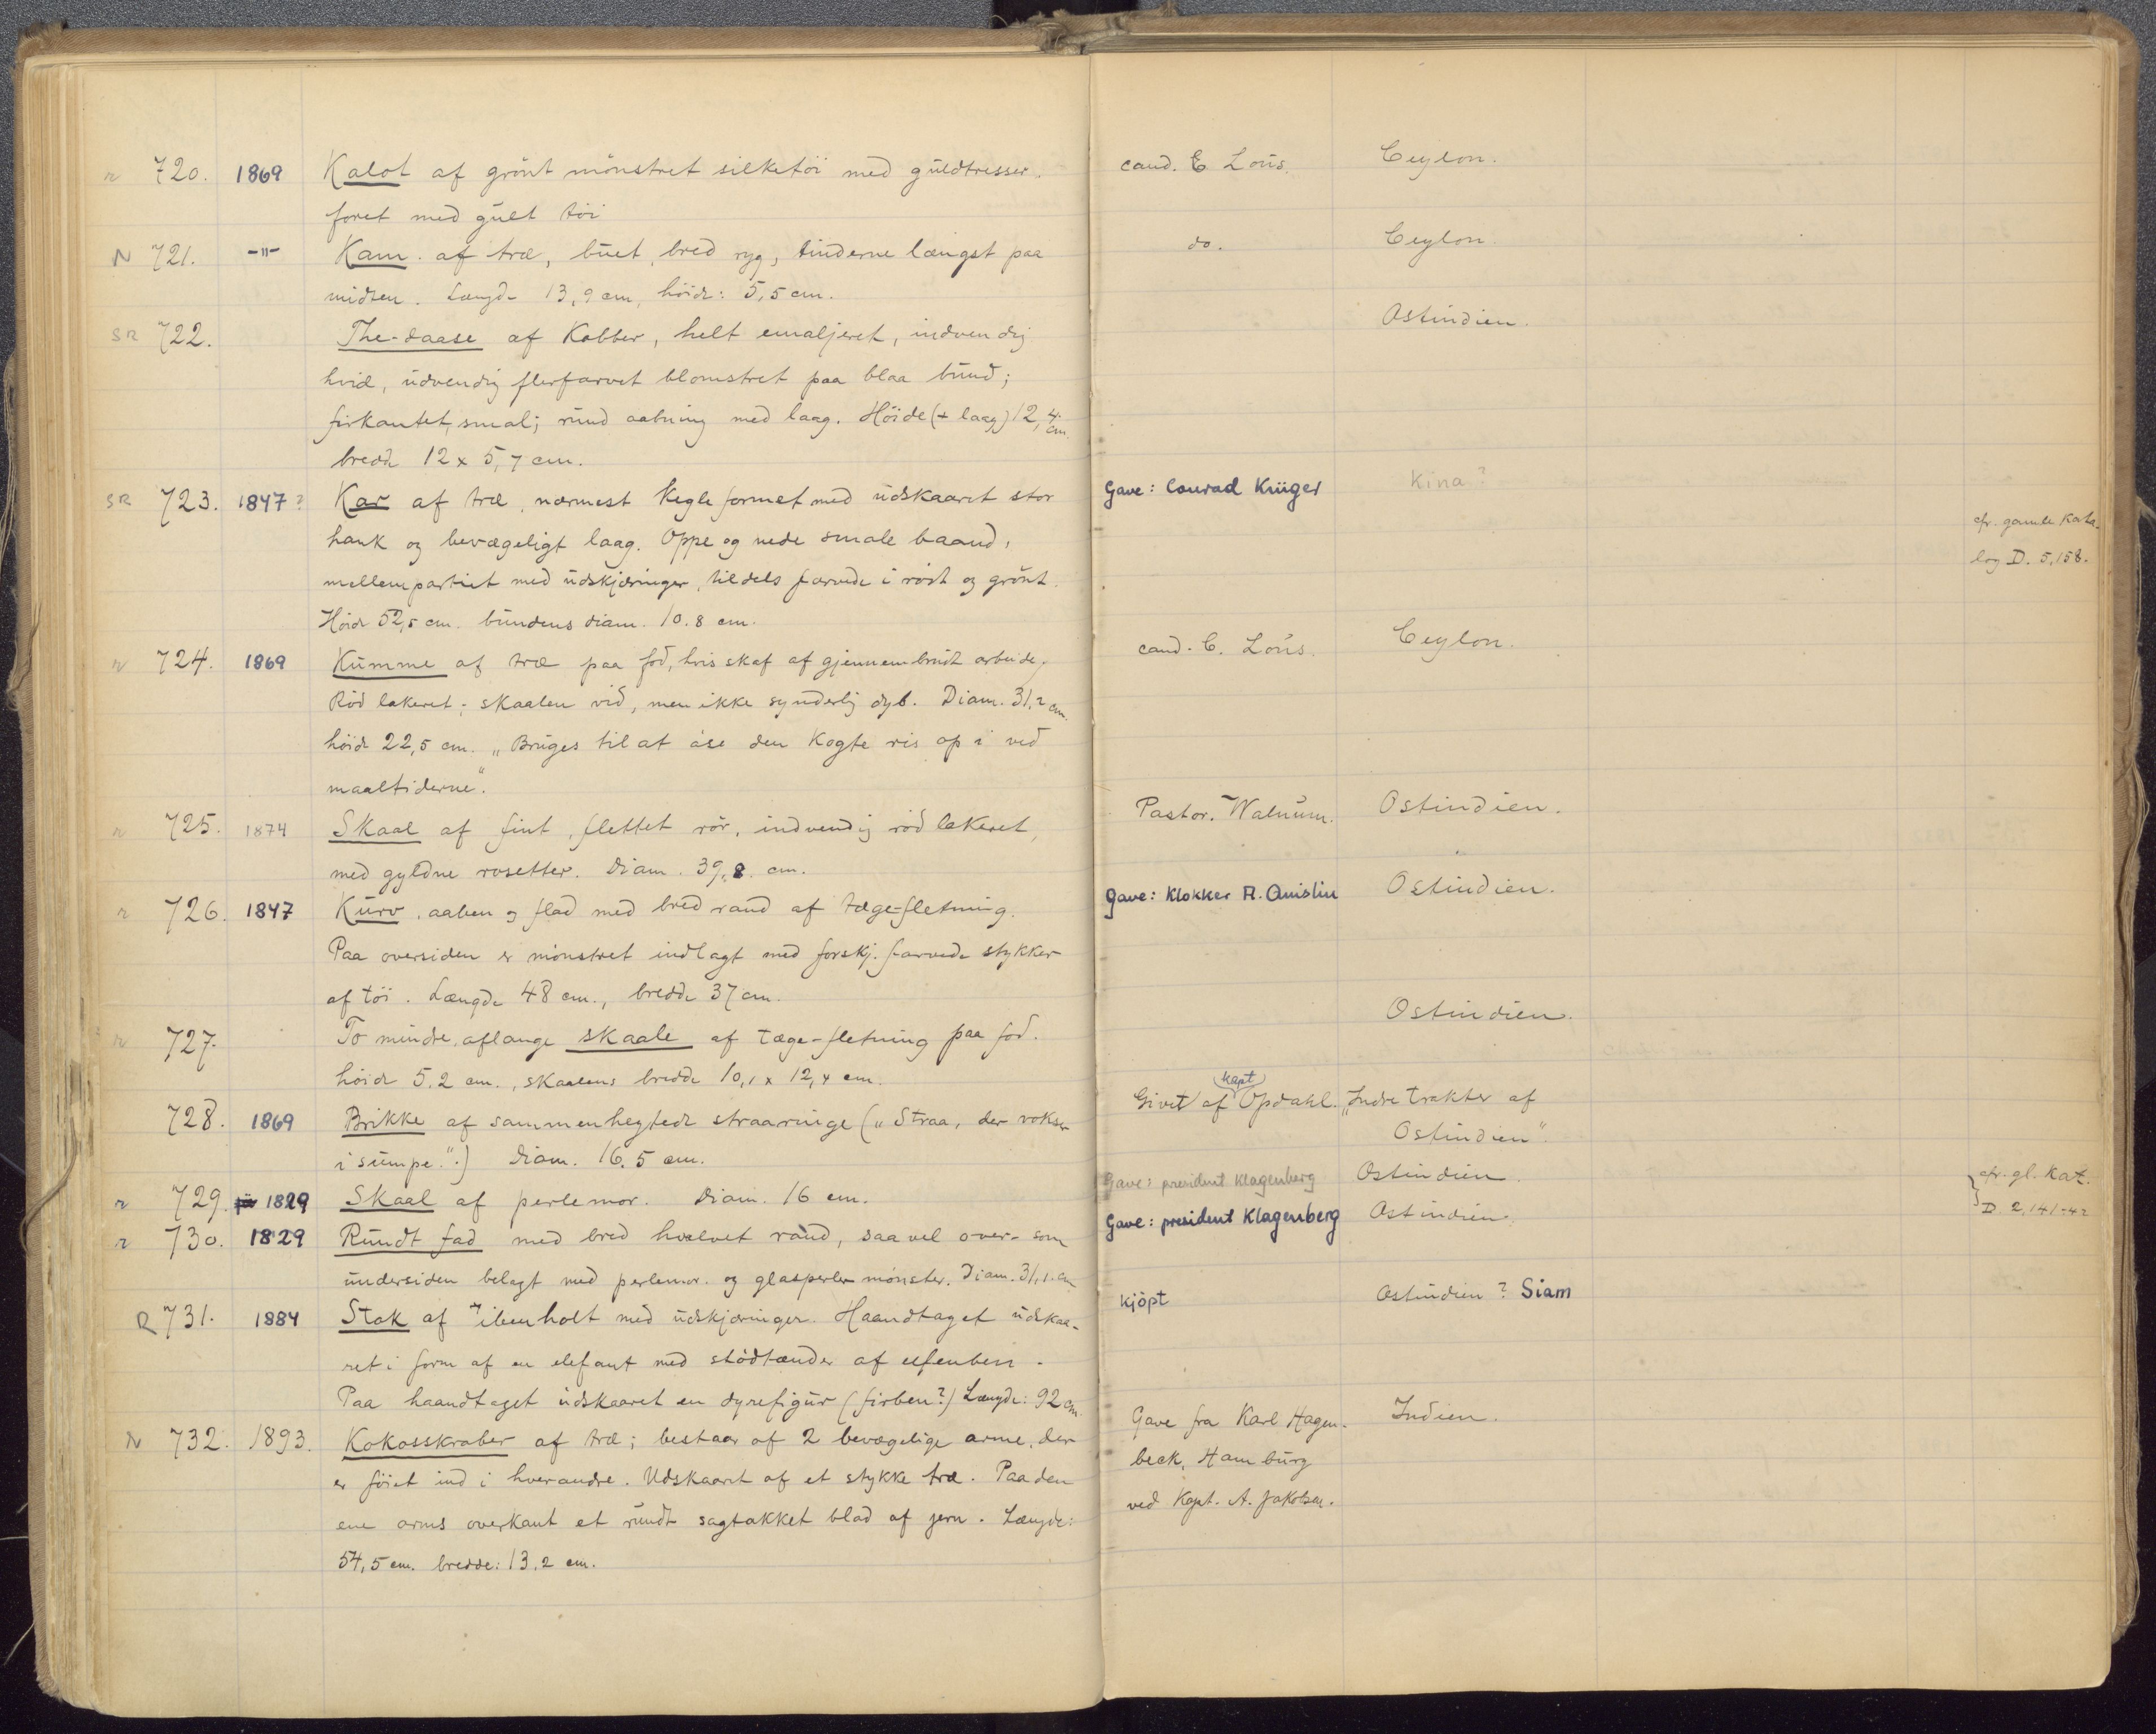 r 720. 1869 Kalot af grönt mönstret silketöi med guldtresser. cand. E Lous. Ceylon.
foret med gult töi
N 721. -"- Kam. af træ, buet, bred ryg, tinderne længst paa do. Ceylon.
midten. Længde 13,9 cm, höide: 5,5 cm.
SR 722. The-daase af Kobber, helt emaljeret, indvendig Ostindien.
hvid, udvendig flerfarvet blomstret paa blaa bund;
firkantet, smal; rund aabning med laag. Höide (+ laag) 12,4 cm.
bredde 12 x 5,7 cm.
SR 723. 1847? Kar af træ, nærmest Kegleformet med udskaaret stor Gave: Conrad Krüger Kina?
hank og bevægeligt laag. Oppe og nede smale baand, cfr. gamle Kata-
mellempartiet med udskjæringer, tildels farvede i rödt og grönt. log D. 5,158.
Höide 52,5 cm. bundens diam. 10.8 cm.
r 724. 1869 Kumme af træ paa fod, hvis skaf af gjennembrudt arbeide, cand. C. Lous. Ceylon.
Röd lakeret; skaalen vid, men ikke synderlig dyb. Diam. 31,2 cm.
höide 22,5 cm. „Bruges til at öse den Kogte ris op i ved
maaltiderne“.
r 725. 1874 Skaal af fint, flettet rör, indvendig röd lakeret, Pastor. Walnum. Ostindien.
med gyldne rosetter. Diam. 39,8. cm.
r 726. 1847 Kurv, aaben og flad med bred rand af tæge-fletning. Gave: Klokker A. Quislin Ostindien.
Paa oversiden er mönstret indlagt med forskj. farvede stykker
af töi. Længde 48 cm., bredde 37 cm.
r 727. To mindre, aflange skaale af tæge-fletning paa fod. Ostindien.
höide 5.2 cm., skaalens bredde 10,1 x 12,4 cm.
728. 1869 Brikke af sammenheftede straaringe („Straa, der vokser Givet af Kapt Opdahl. „Indre trakter af
i sumpe.“) Diam. 16.5 cm. Ostindien“.
r 729. 1829 Skaal af perlemor. Diam. 16 cm. Gave: president Klagenberg Ostindien. cfr. gl. Kat.
r 730. 1829 Rundt fad med bred hvælvet rand, saavel over- som Gave: president Klagenberg Ostindien. D. 2,141-42
undersiden belagt med perlemor. og glasperler mönster. Diam. 31,1. cm
R 731. 1884 Stok af ibenholt med udskjæringer. Haandtaget udskaa- kjöpt Ostindien? Siam
ret i form af en elefant med stödtænder af elfenben.
Paa haandtaget udskaaret en dyrefigur (firben?) Længde: 92 cm.
N 732. 1893. Kokosskraber af træ; bestaar af 2 bevægelige arme, der Gave fra Karl Hagen- Indien.
er föiet ind i hverandre. Udskaaret af et stykke træ. Paa den beck, Hamburg
ene arms overkant et rundt sagtakket blad af jern. Længde: ved Kapt. A. Jakobsen.
54,5 cm. bredde: 13.2 cm.